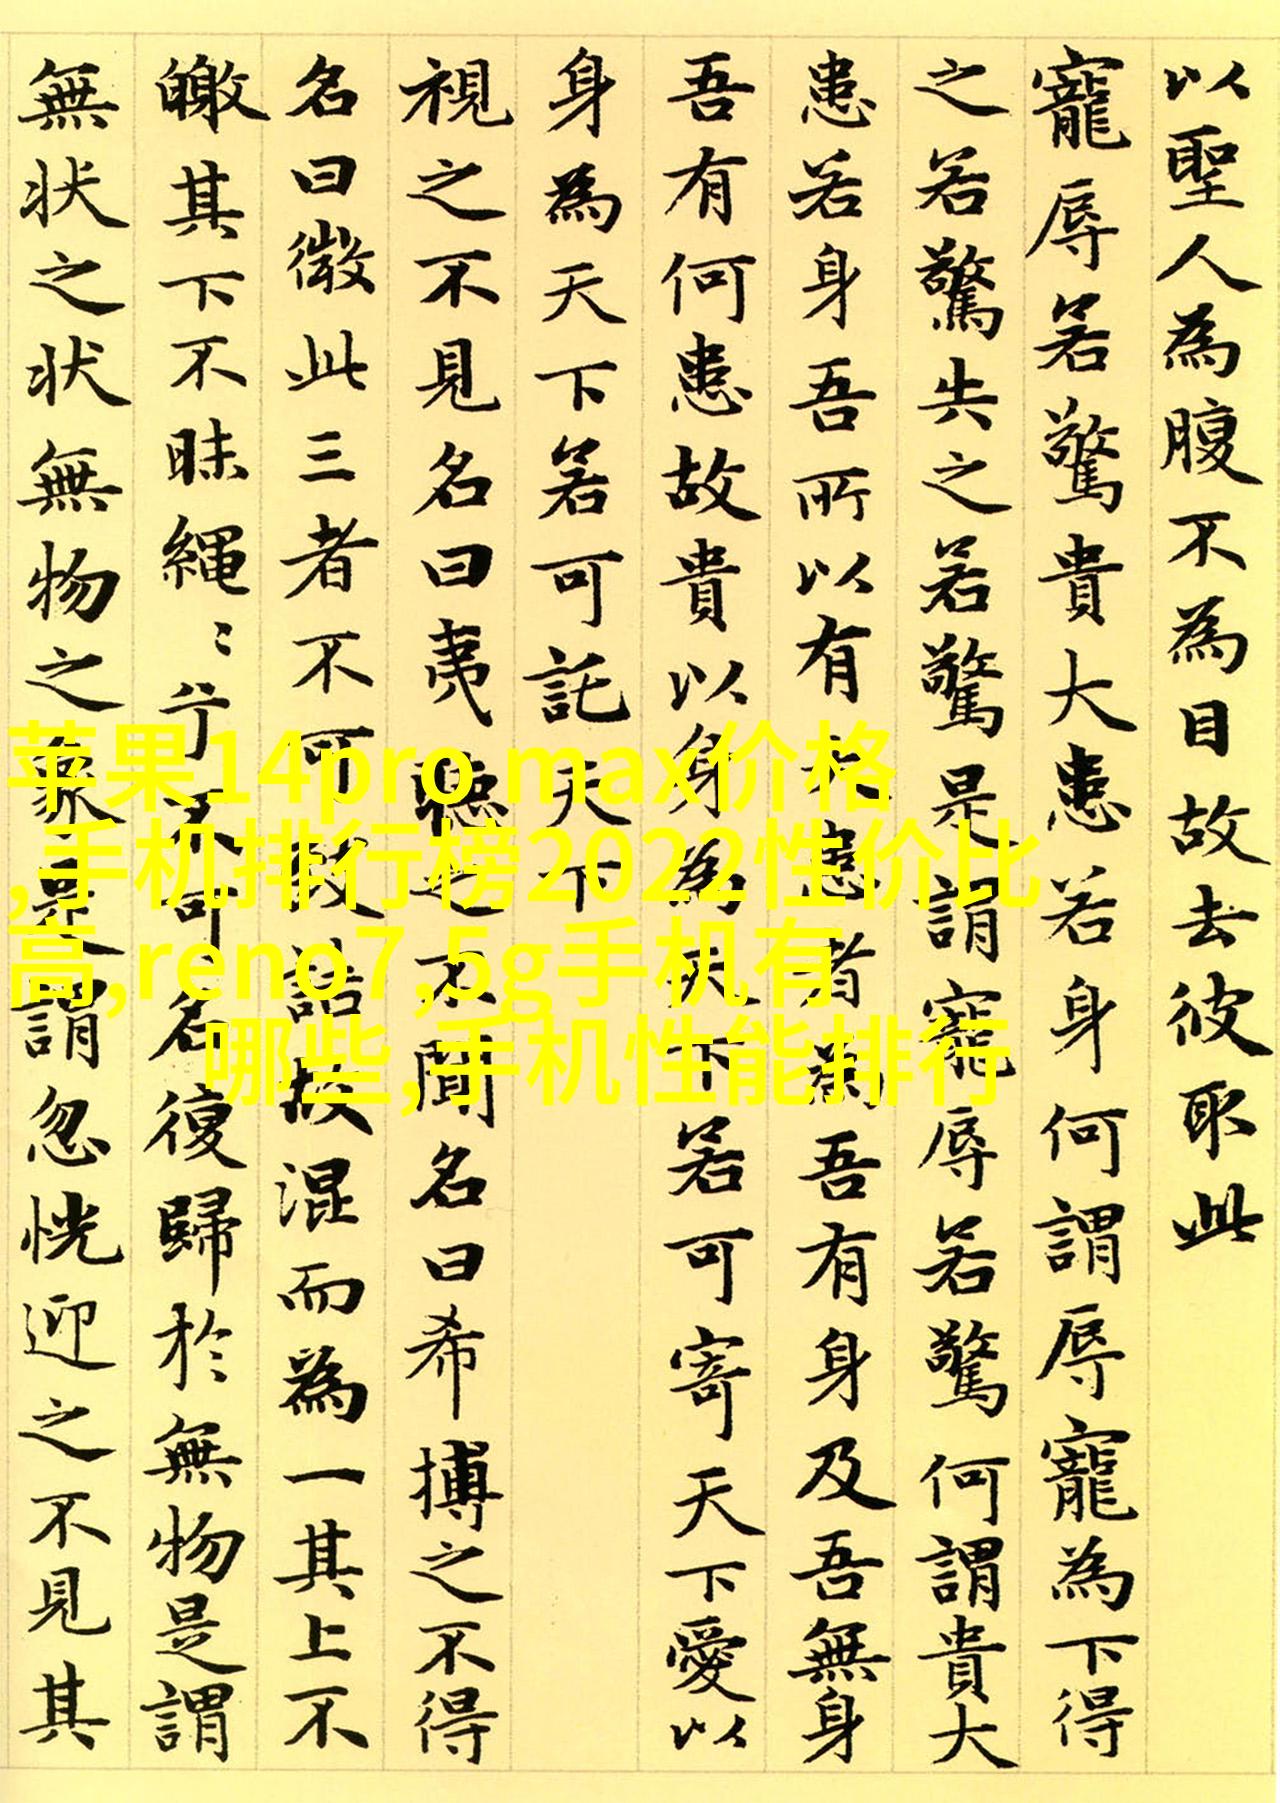 以聖人為腹不為目故去彼取此
寵辱若驚貴大患若身何謂辱寵為下得
之若驚失之若驚是謂寵辱若驚何謂貴大
患若身吾所以有大患者為吾有身及吾無身
吾有何患故貴以身為天下若可寄天下愛以
身為天下若可託天下
視之不見名曰夷聽之不聞名曰希搏之不得
名曰微此三者不可致詰故混而為一其上不
皦其下不昧繩〻兮不可名復歸於無物是謂
無状之状無物之象是謂忽恍迎之不見其
苹果14pro max价格
,手机排行榜2022性价比
高,reno7,5g手机有
哪些,手机性能排行